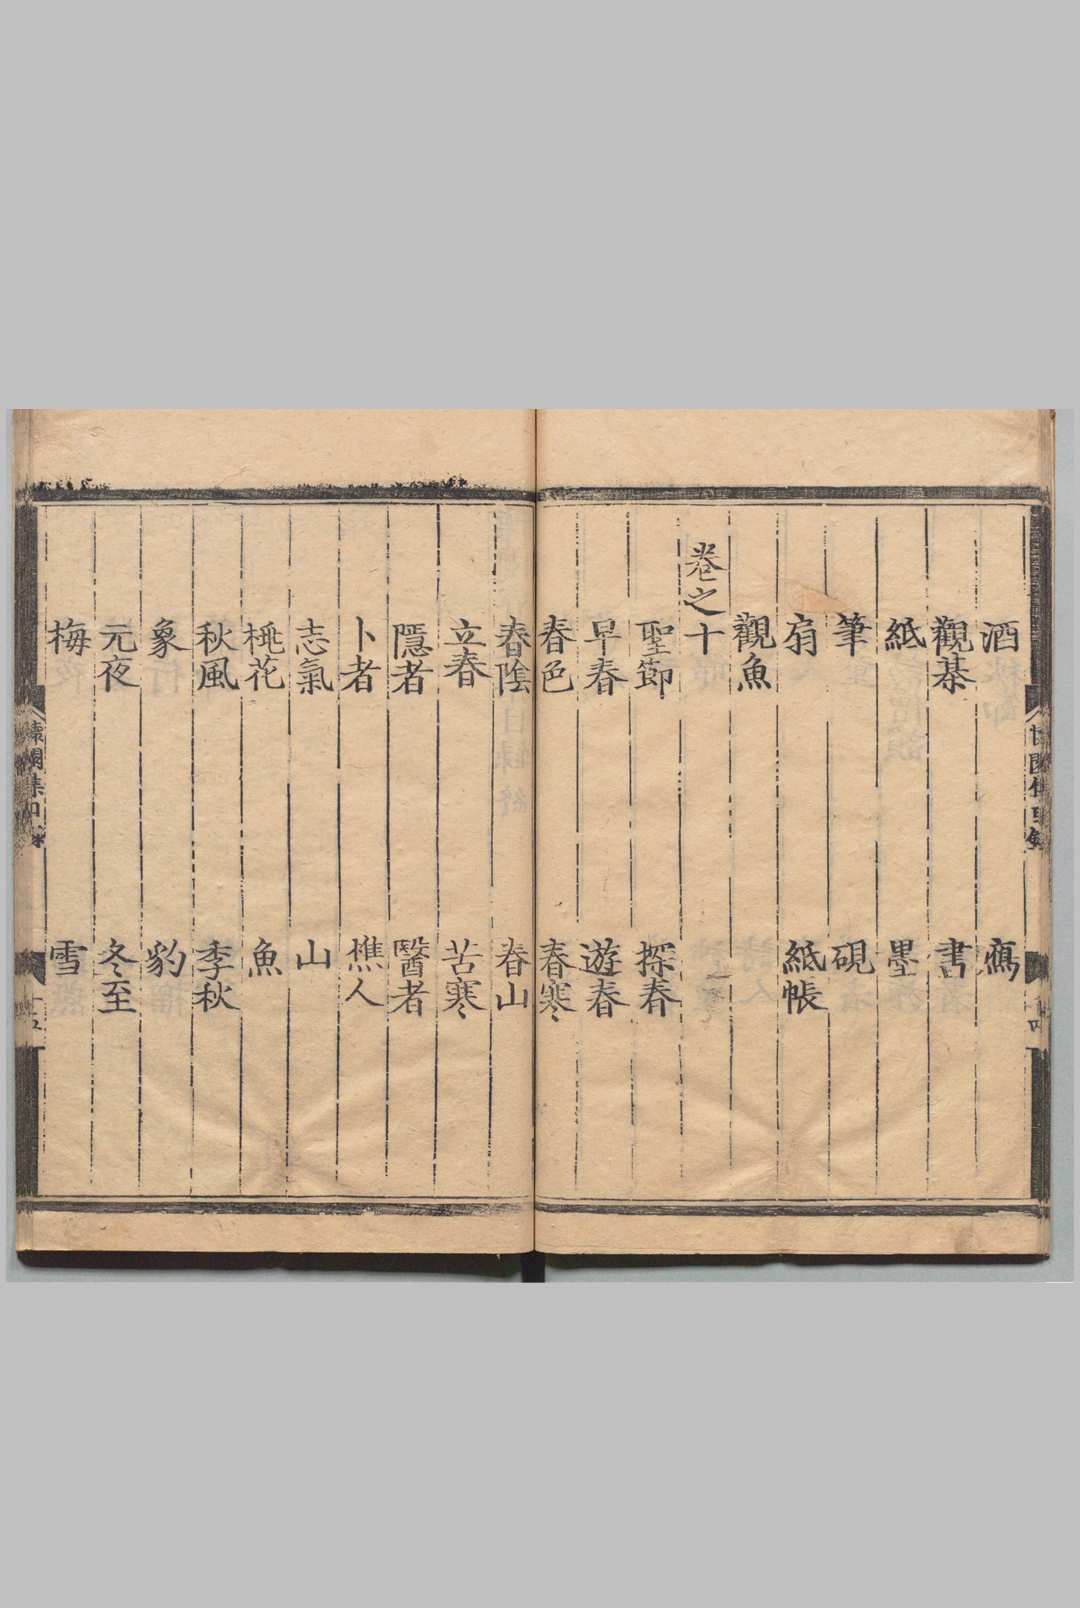 酒　鴈
觀棊　書
紙　墨
筆　硯
扇　紙帳
觀魚
卷之十
聖節　探春
早春　遊春
春色　春寒
春陰　春山
立春　苦寒
隱者　醫者
卜者　樵人
志氣　山
桃花　魚
秋風　季秋
象　豹
元夜　冬至
梅　雪
十四
十五